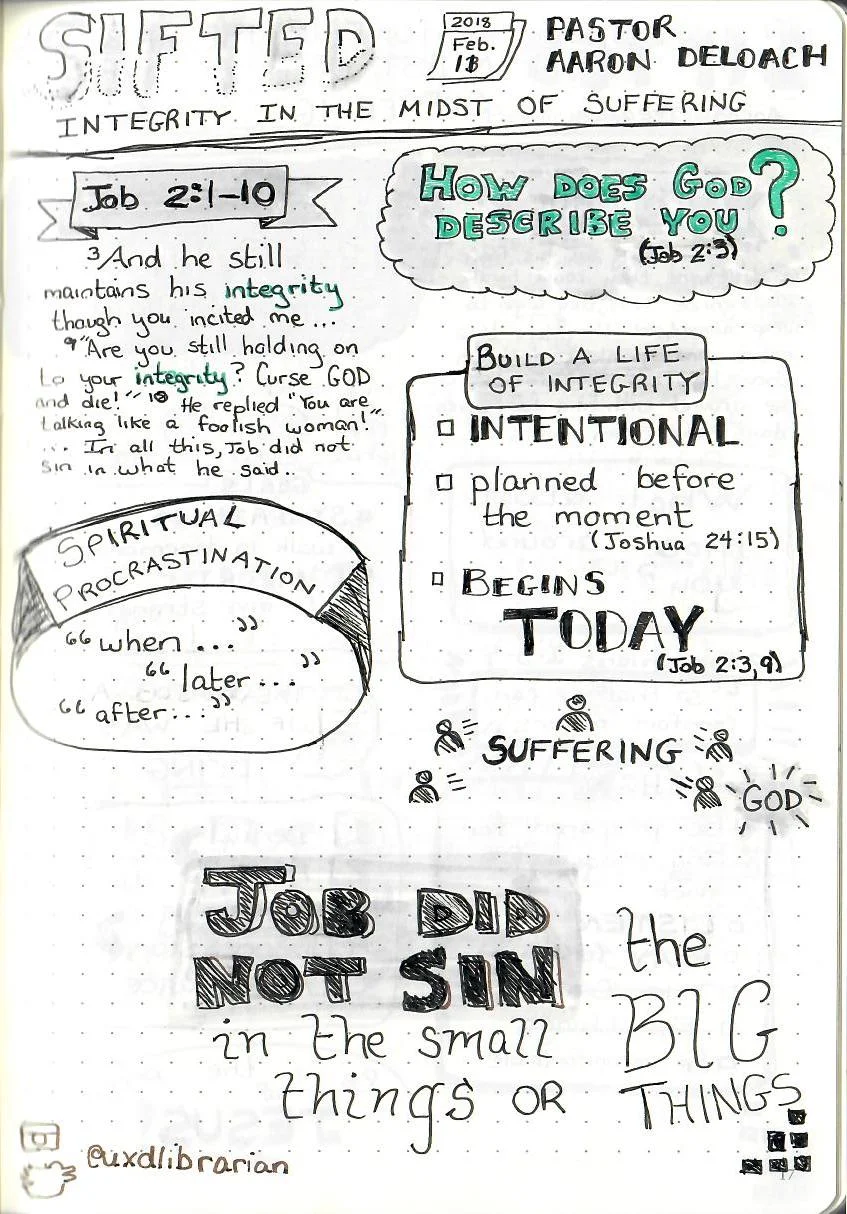 SIFTED
2018
Feb.
18
PASTOR
AARON DELOACH
INTEGRITY IN THE MIDST OF SUFFERING
Job 2:1-10
3And he still
maintains his integrity
though you incited me...
9"Are you still holding on
to your integrity? Curse GOD
and die!" 10 He replied "You are
talking like a foolish woman!"
... In all this, Job did not
sin in what he said..
HOW DOES GOD
DESCRIBE YOU?
(Job 2:3)
BUILD A LIFE
OF INTEGRITY
INTENTIONAL
planned before
the moment
(Joshua 24:15)
BEGINS
TODAY
(Job 2:3,9)
SPIRITUAL
PROCRASTINATION
"when ..."
"later..."
"after..."
SUFFERING
GOD
JOB DID
NOT SIN
in the small
things OR
the
BIG
THINGS
@uxdlibrarian
17